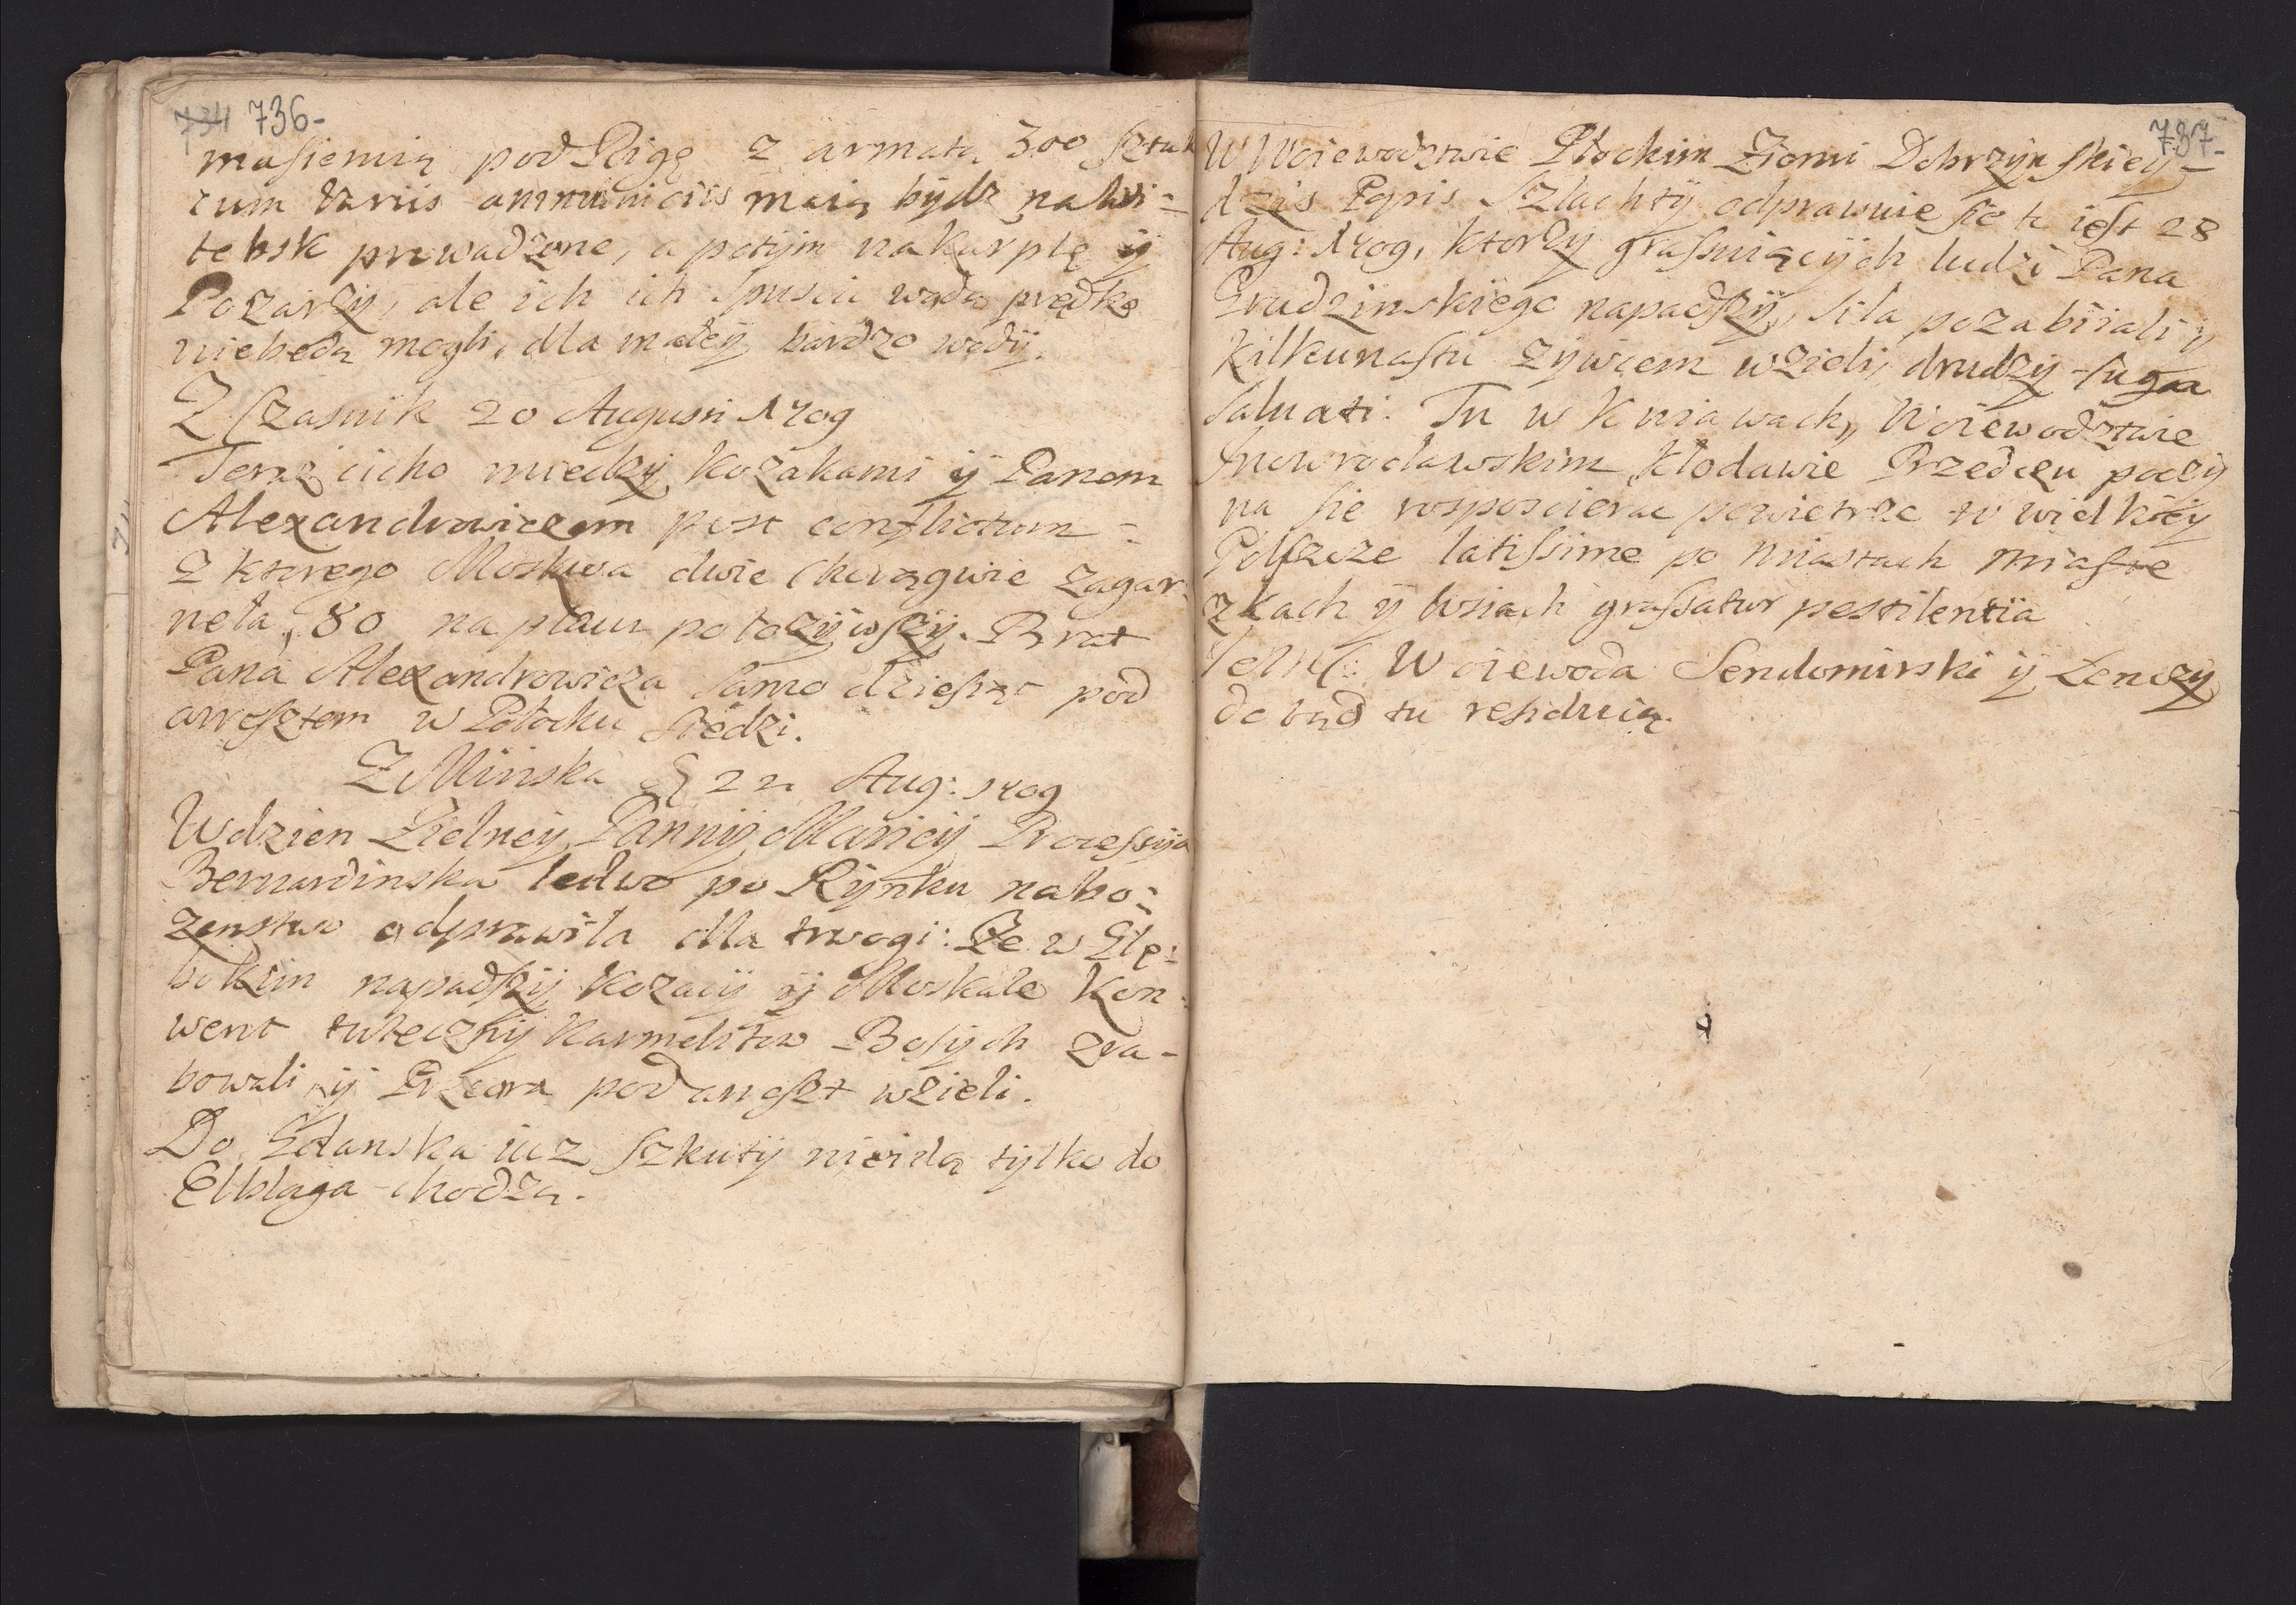 734 736-
masieruią pod Rigę z armatą 300 sztuk
cum variis ammunitiis maią bydz na Wi=
tebsk prowadzone, a potÿm na Karplę ÿ
Pozarÿ, ale ich ich spuscic wodą prędko
niebedą mogli, dla małeÿ bardzo wodÿ.
Z Czasnik 20 Augusti 1709
Teraz cicho miedzÿ Kozakami ÿ Panem
Alexandrowiczem post conflictum =
z ktorego Moskwa dwie Chorągwie zagar=
neła, 80 na placu położÿwszÿ. Brat
Pana Alexandrowicza samo dziesiąt pod
aresztem w Połocku siedzi.
Z Minska 22 Aug: 1709
W dzien Zielneÿ Pannÿ Marieÿ Processÿa
Bernardinska ledwo po Rÿnku nabo=
zenstwo odprawiła dla trwogi: Ze w Głę=
bokim napadszÿ Kozacÿ ÿ Moskale Kon=
went tutecznÿ Karmelitow Bosÿch zra-
bowali ÿ Przeora pod areszt wzieli.
Do Gdanska iuz szkutÿ nieidą tÿlko do
Elbląga chodzą.
787-
W Woiewodztwie Płockim Ziemi Dobrzÿnskieÿ =
dzis Popis Szlachtÿ odprawuie sie to iest 28
Aug: 1709, ktorzÿ grassuiącÿch ludzi Pana
Grudzinskiego napadszÿ, siła pozabiiali ÿ
Kilkunastu zÿwcem wzieli, drudzÿ fuga
salvati. Tu w Kuiawach, Woiewodztwie
Inowrocławskim, Kłodawie Przedczu poczÿ
na sie rosposcierac powietrze w wielkieÿ
Polszcze latissime po Miastach Miaste
zkach ÿ wsiach grassatur pestilentia
Woiewoda Sendomirski ÿ Lenczÿ
dotąd tu residuią.